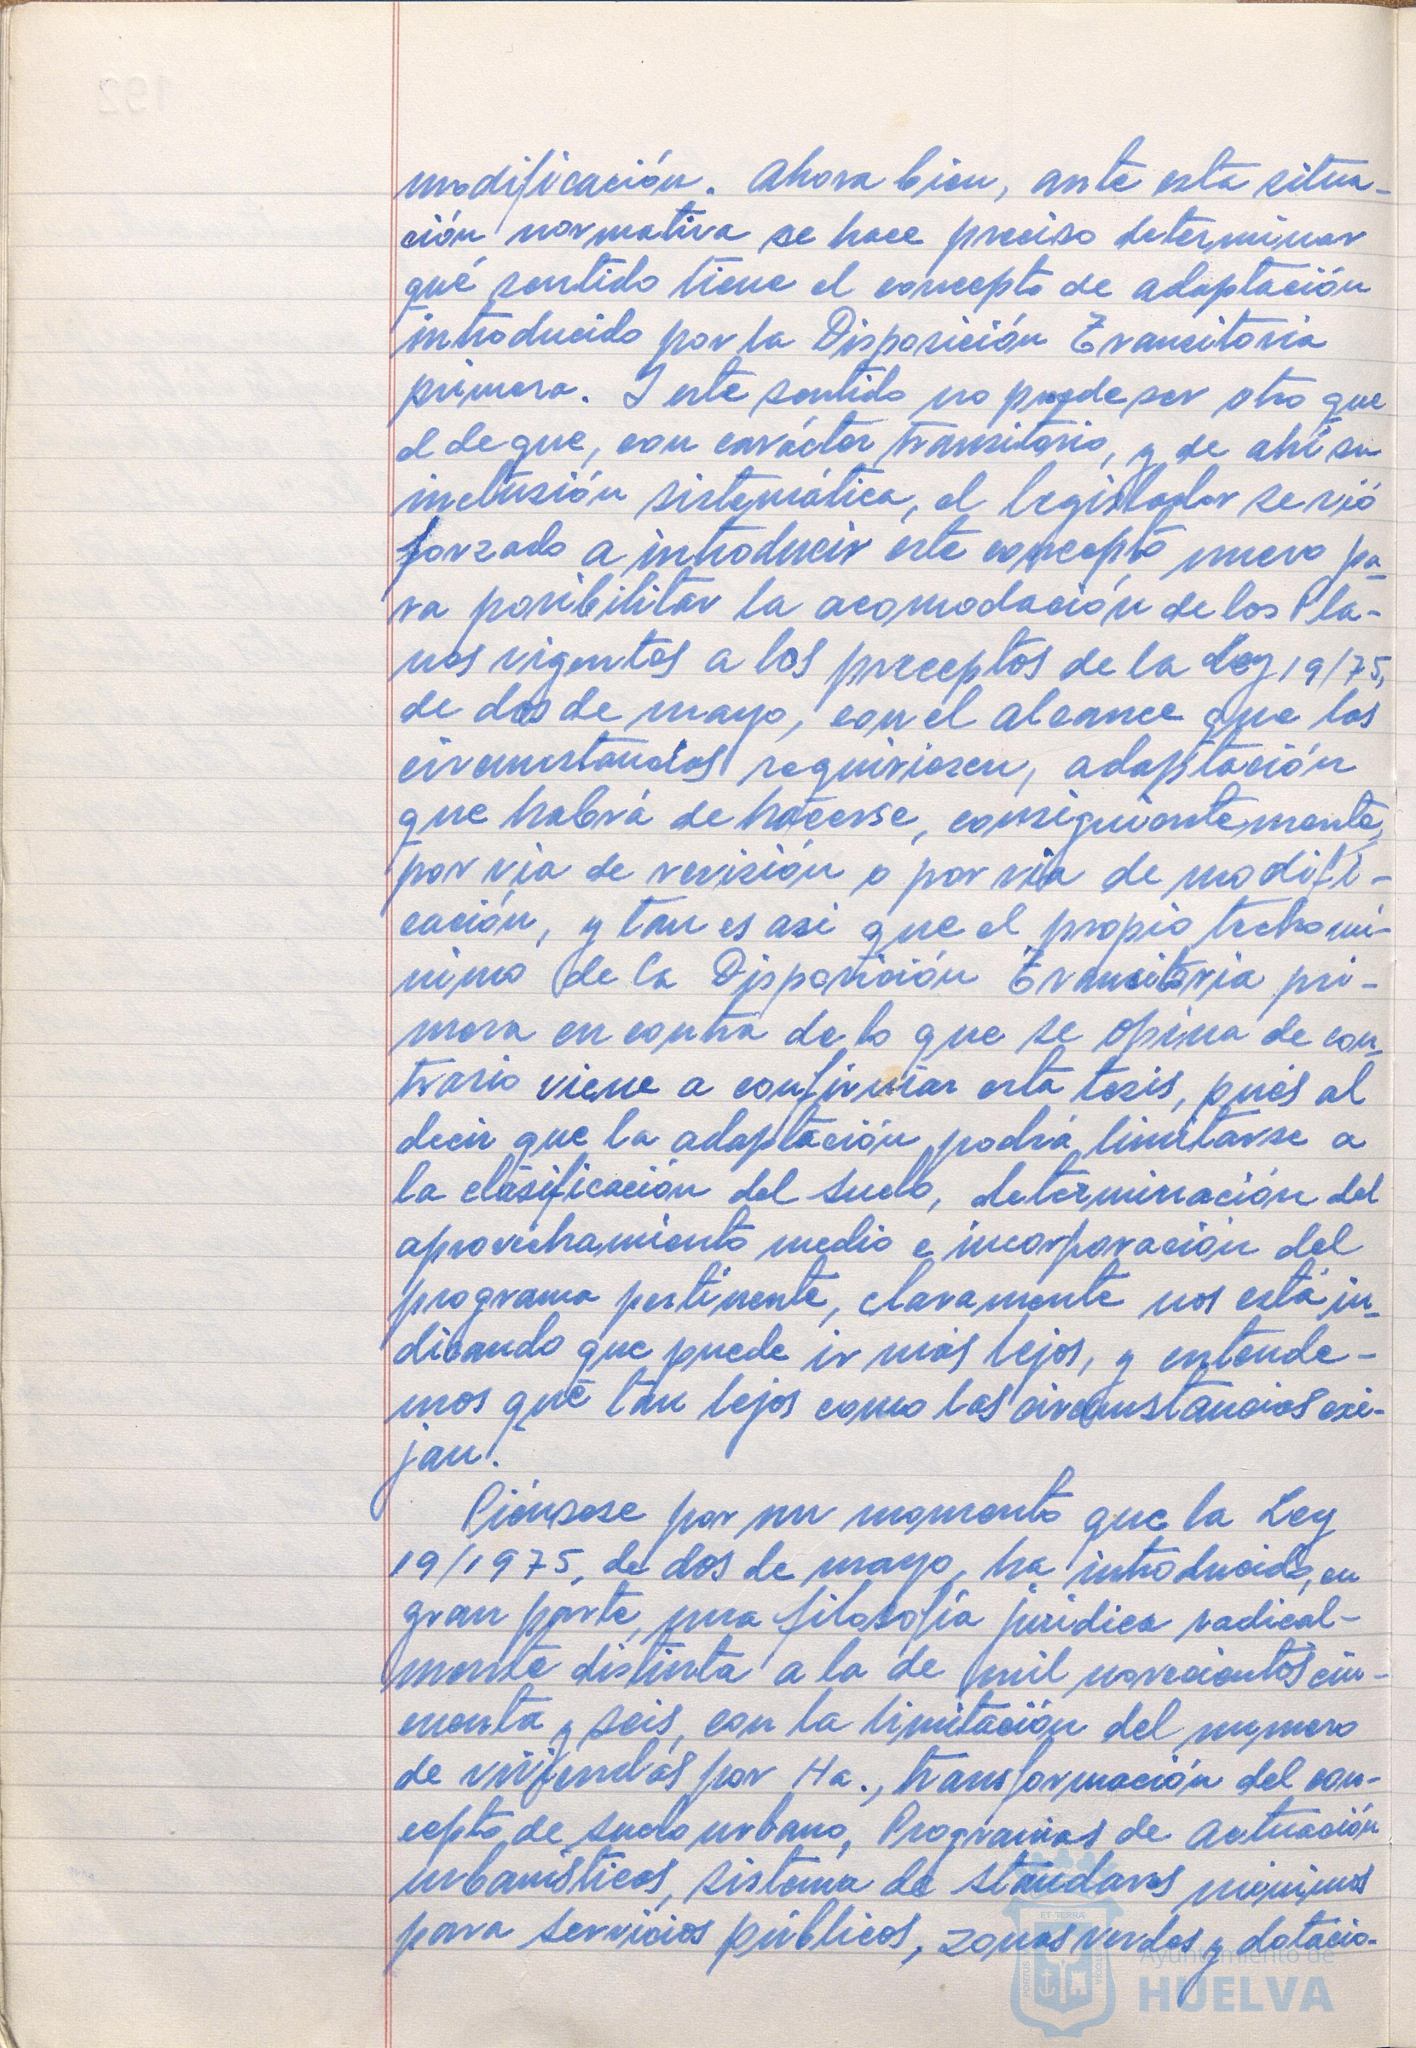 modificación. Ahora bien, ante esta situa-
ción normativa se hace preciso determinar
qué sentido tiene el concepto de adaptación
introducido por la Disposición Transitoria
primera. Y este sentido no puede ser otro que
el de que, con carácter transitorio, y de ahí su
inclusión sistemática, el legislador se vió
forzado a introducir este concepto nuevo pa-
ra posibilitar la acomodación de los Pla-
nes vigentes a los preceptos de la Ley 19/75,
de dos de mayo, con el alcance que las
circunstancias requiriesen, adaptación
que habrá de hacerse, consiguientemente,
por via de revisión o por via de modifi-
cación, y tan es asi que el propio techo mi-
nimo de la Disposición Transitoria pri-
mera en contra de lo que se opina de con-
trario viene a confirmar esta tesis, pués al
decir que la adaptación podrá limitarse a
la clasificación del suelo, determinación del
aprovechamiento medio e incorporación del
programa pertinente, claramente nos está in-
dicando que puede ir más lejos, y entende-
mos que tan lejos como las circunstancias exi-
jan.
Piénsese por un momento que la Ley
19/1975, de dos de mayo, ha introducido, en
gran parte, una filosofía jurídica radical-
mente distinta a la de mil novecientos cin-
cuenta y seis, con la limitación del numero
de viviendas por Ha., transformación del con-
cepto de suelo urbano, Programas de Actuación
urbanísticos, sistema de standares minimos
para servicios públicos, zonas verdes y dotacio-
192
ET TERRA
PORTUS
Ayuntamiento de
HUELVA